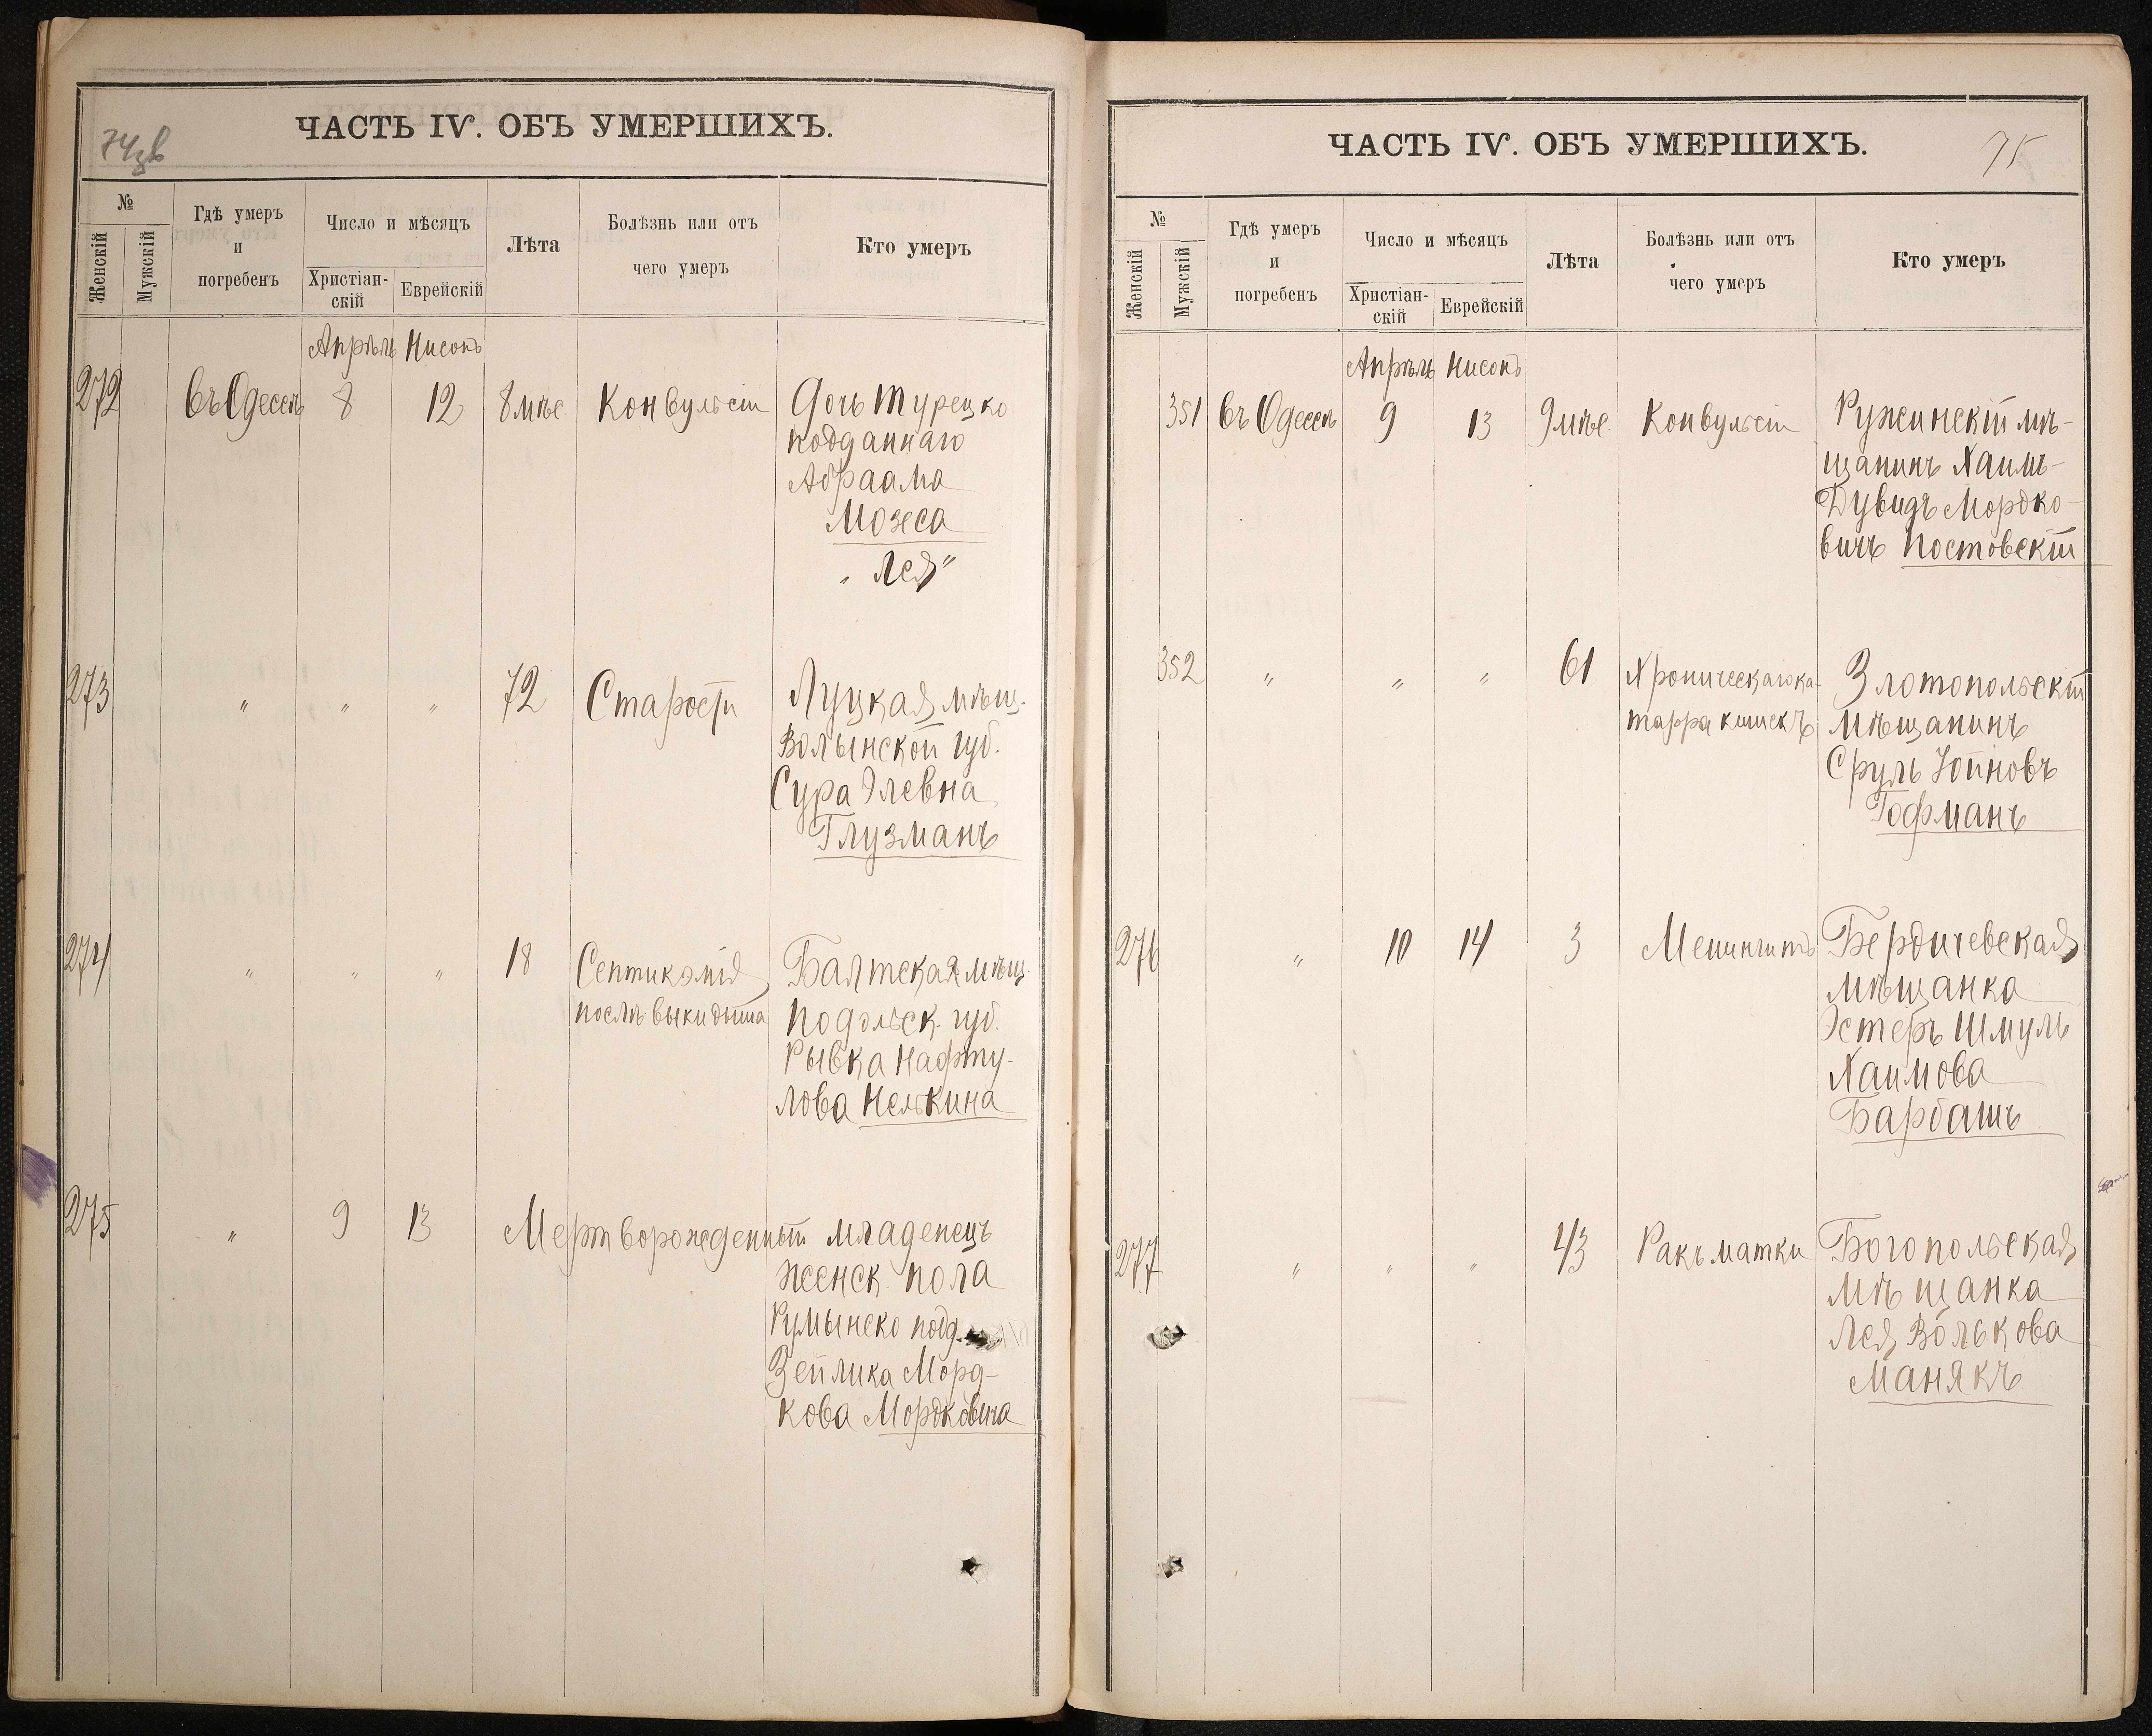 74 зв
ЧАСТЬ IV. ОБЪ УМЕРШИХЪ.
№
Женскій
Мужскій
Гдѣ умеръ
и
погребенъ
Число и мѣсяцъ
Христіан-
скій
Еврейскій
Лѣта
Болѣзнь или отъ
чего умеръ
Кто умеръ
Апрѣль Нисонъ
272 въ Одессѣ 8 12 8 мѣс Конвульсіи Дочь Турецко
подданнаго
Абраама
Мозеса
„ Лея “
273 „ „ „ 72 Старости Луцкая мѣщ.
Волынской губ.
Сура Элевна
Глузманъ
274 „ „ „ 18 Септикэмія Балтская мѣщ.
послѣ выкидыша Подольск. губ.
Рывка Нафту-
лова Нелькина
275 „ 9 13 Мертворожденный младенецъ
женск. пола
Румынско подд.
Зейлика Морд-
кова Мордковича
75
ЧАСТЬ IV. ОБЪ УМЕРШИХЪ.
№
Женскій
Мужскій
Гдѣ умеръ
и
погребенъ
Число и мѣсяцъ
Христіан-
скій
Еврейскій
Лѣта
Болѣзнь или отъ
чего умеръ
Кто умеръ
Апрѣль Нисонъ
351 въ Одессѣ 9 13 9 мѣс. Конвульсіи Ружинскій мѣ-
щанинъ Хаимъ-
Дувидъ Мордко-
вичъ Постовскій
352 „ „ „ 61 Хроническаго ка- Златопольскій
тарра кишекъ мѣщанинъ
Сруль Іойновъ
Гофманъ
276 „ 10 14 3 Менингитъ Бердичевская
мѣщанка
Эстеръ Шмуль
Хаимова
Барбашъ
277 „ „ „ 43 Ракъ матки Богопольская
мѣщанка
Лея Волькова
Манякъ